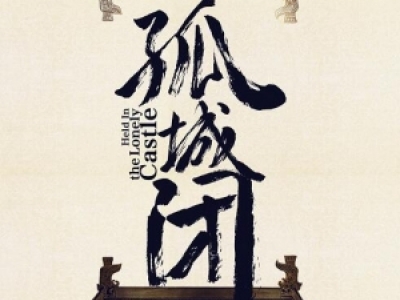 孤城闭
Held In
the Lonely
Castle